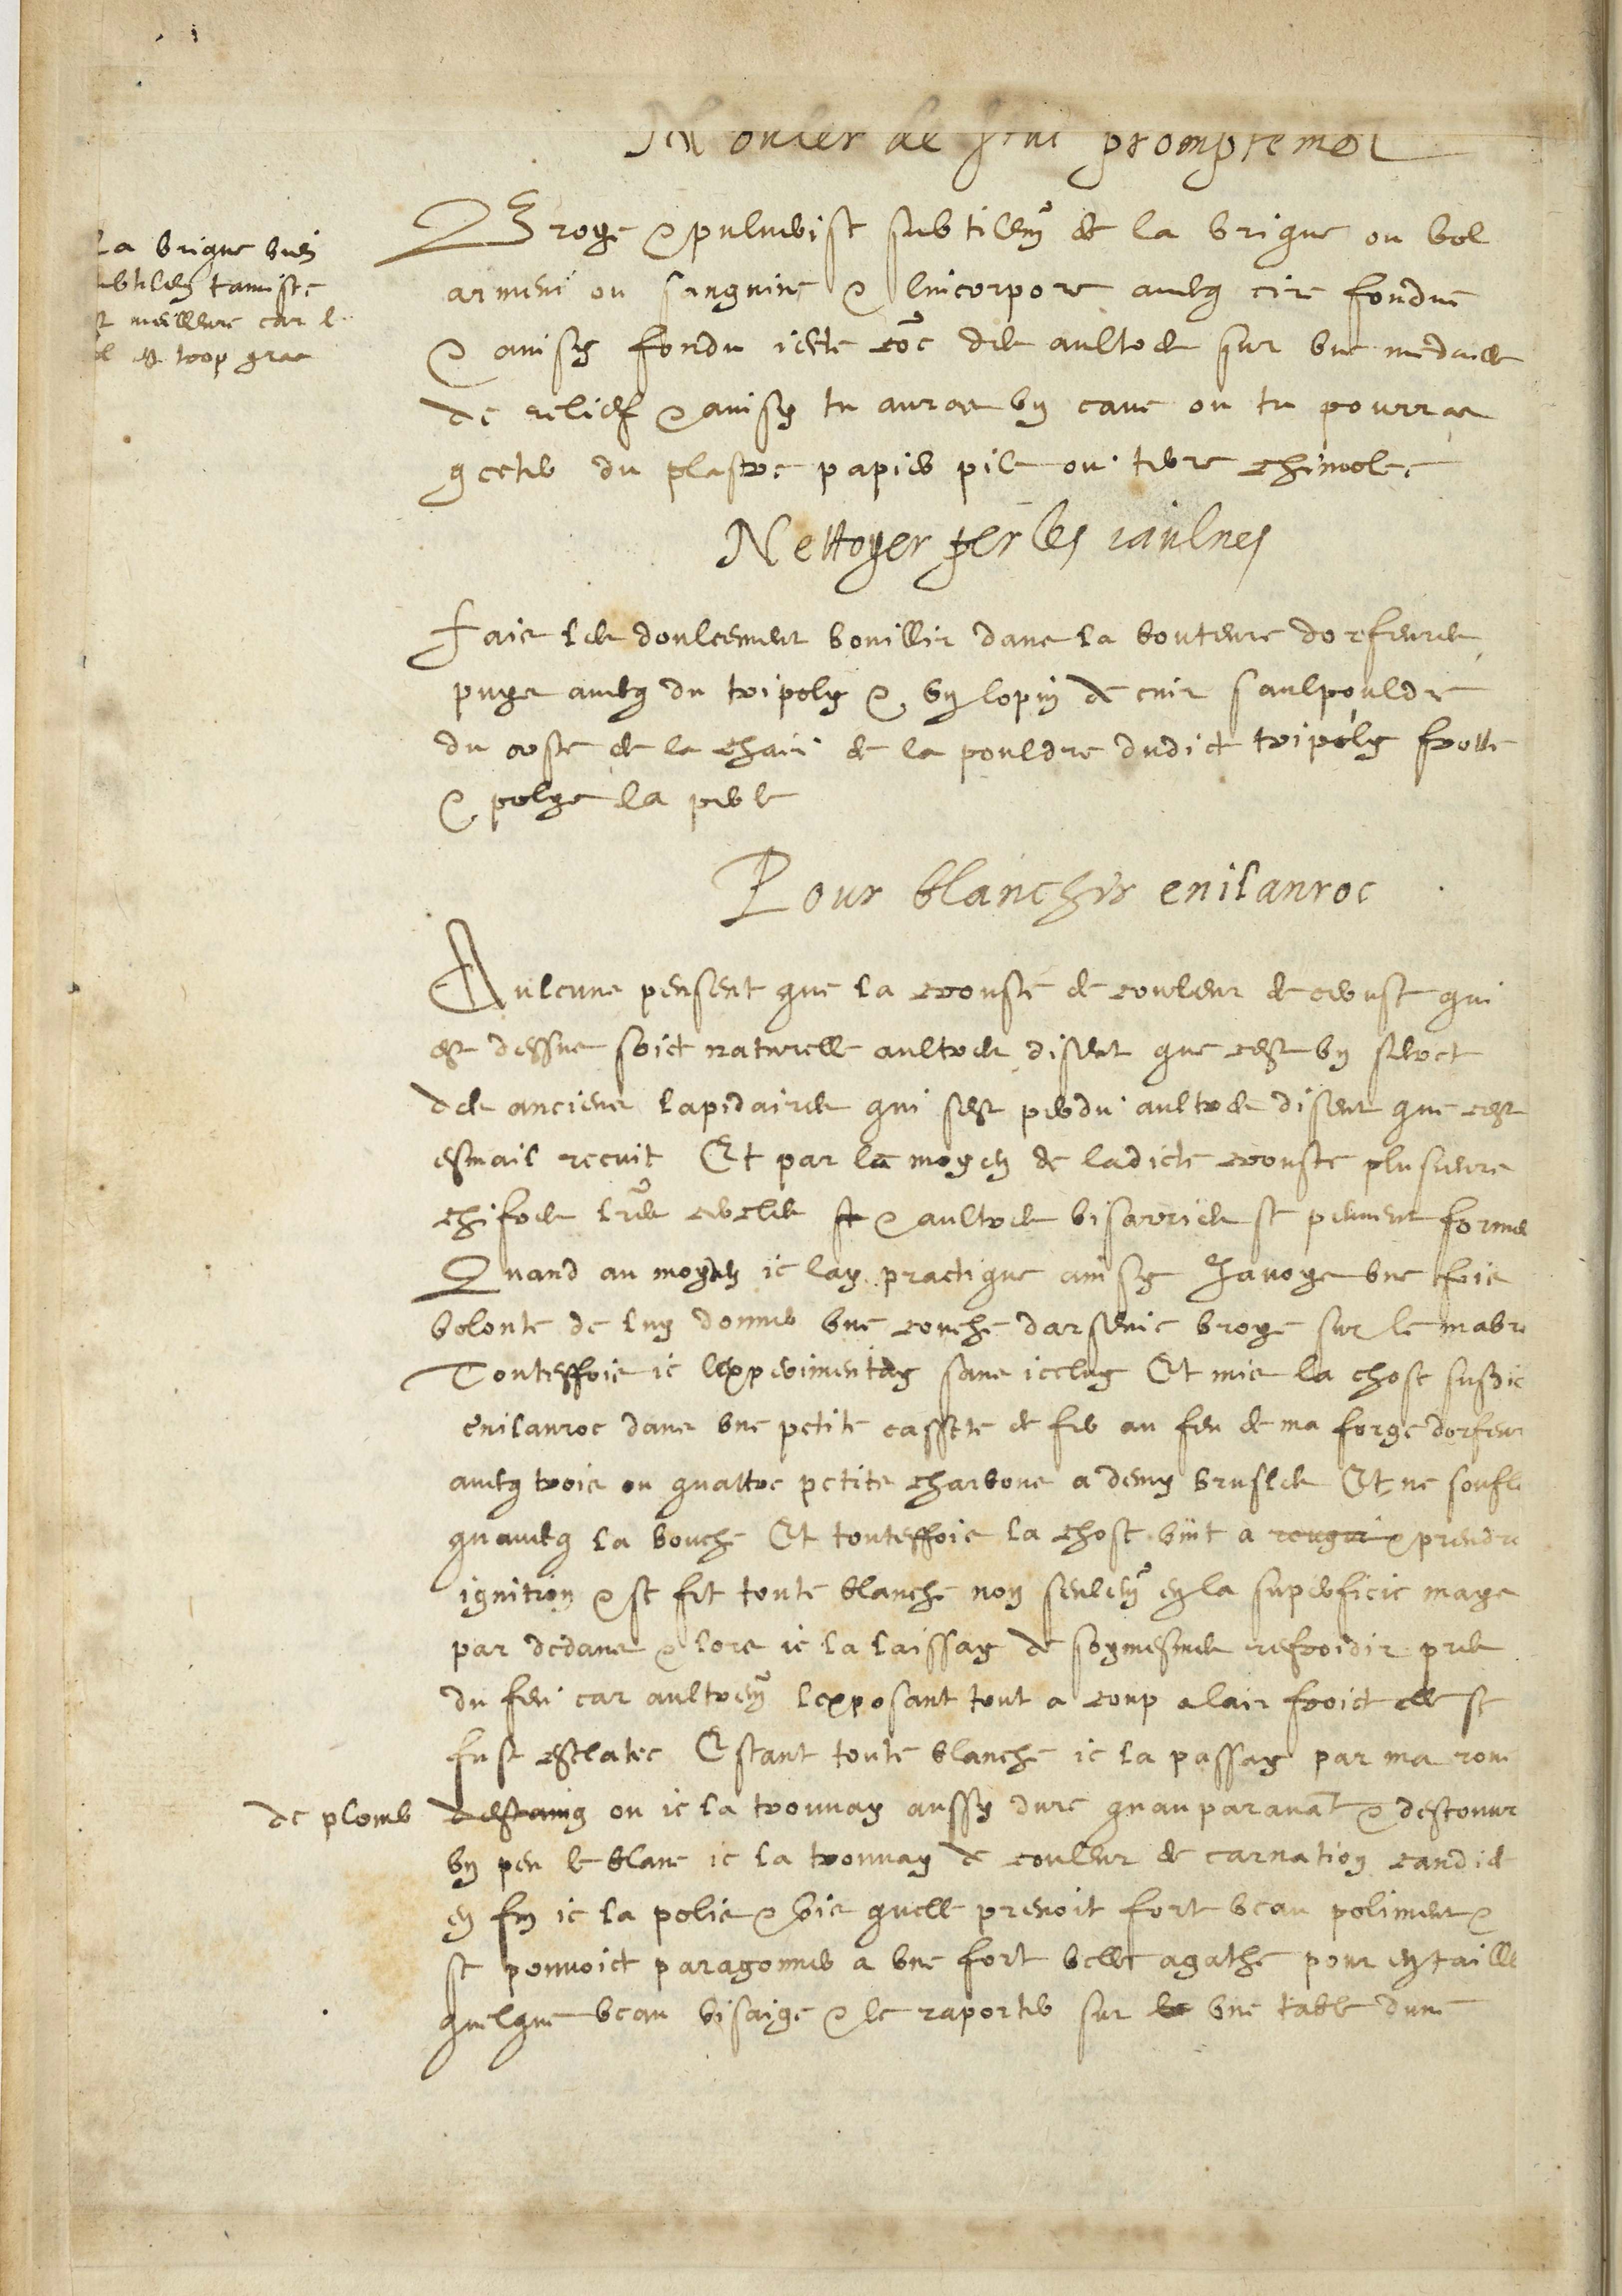 Mouler de sable promptemẽt
La brique bien
subtilem tamisee
est meilleure car l
bol est trop gras
Broye & pulverise subtillem de la brique ou bol
armeni ou sanguine & lincorpore avecq cire fondue
& ainsy fondu iecte coẽ des aultres sur une medaille
de relief & ainsy tu auras un cave ou tu pourras
gecter du plastre papier pile ou terre chimolee
Nettoyer perles iaulnes
Fais les doulcement bouillir dans la bouteure dorfevres
puys avecq du tripoly & un lopin de cuir saulpouldre
du coste de la chair de la pouldre dudict tripoly frotte
& polys la perle
Pour blanchir enilanroc
Aulcuns pensent que la crouste de couleur de ceruse qui
est dessus soict naturelle aultres disent que cest un secret
des anciens lapidaires qui sest perdu aultres disent que cest
esmail recuit Et par le moyen de ladicte crouste plusieurs
chifres lrẽs cercles & aultres bisarries se peuvent former
Quand au moyen ie lay practique ainsy Javoys une fois
volonte de luy donner une couche darsenic broye sur le mabre
Touteffois ie lexperimentay sans iceluy Et mis la chose susdic
enilanroc dans une petite cassete de fer au feu de ma forge dorfevr
avecq trois ou quattre petits charbons a demy brusles Et ne soufle
quavecq la bouche Et touteffois la chose vint a rougir & prendre
ignition & se fit toute blanche non seulem en la superficie mays
par dedans & lors ie la laissay de soymesmes refroidir pres
du feu car aultrem lexposant tout a coup a lair froict elle se
fust esclatee Estant toute blanche ie la passay par ma roue
de plomb
destaing ou ie la trouvay aussy dure quauparavãt & descouvr
un peu le blanc ie la trouvay de couleur de carnation candide
en fin ie la polis & vis quelle prenoit fort beau poliment &
se pouvoict paragonner a une fort belle agathe pour en taille
quelque beau visaige & le raporter sur une table dune